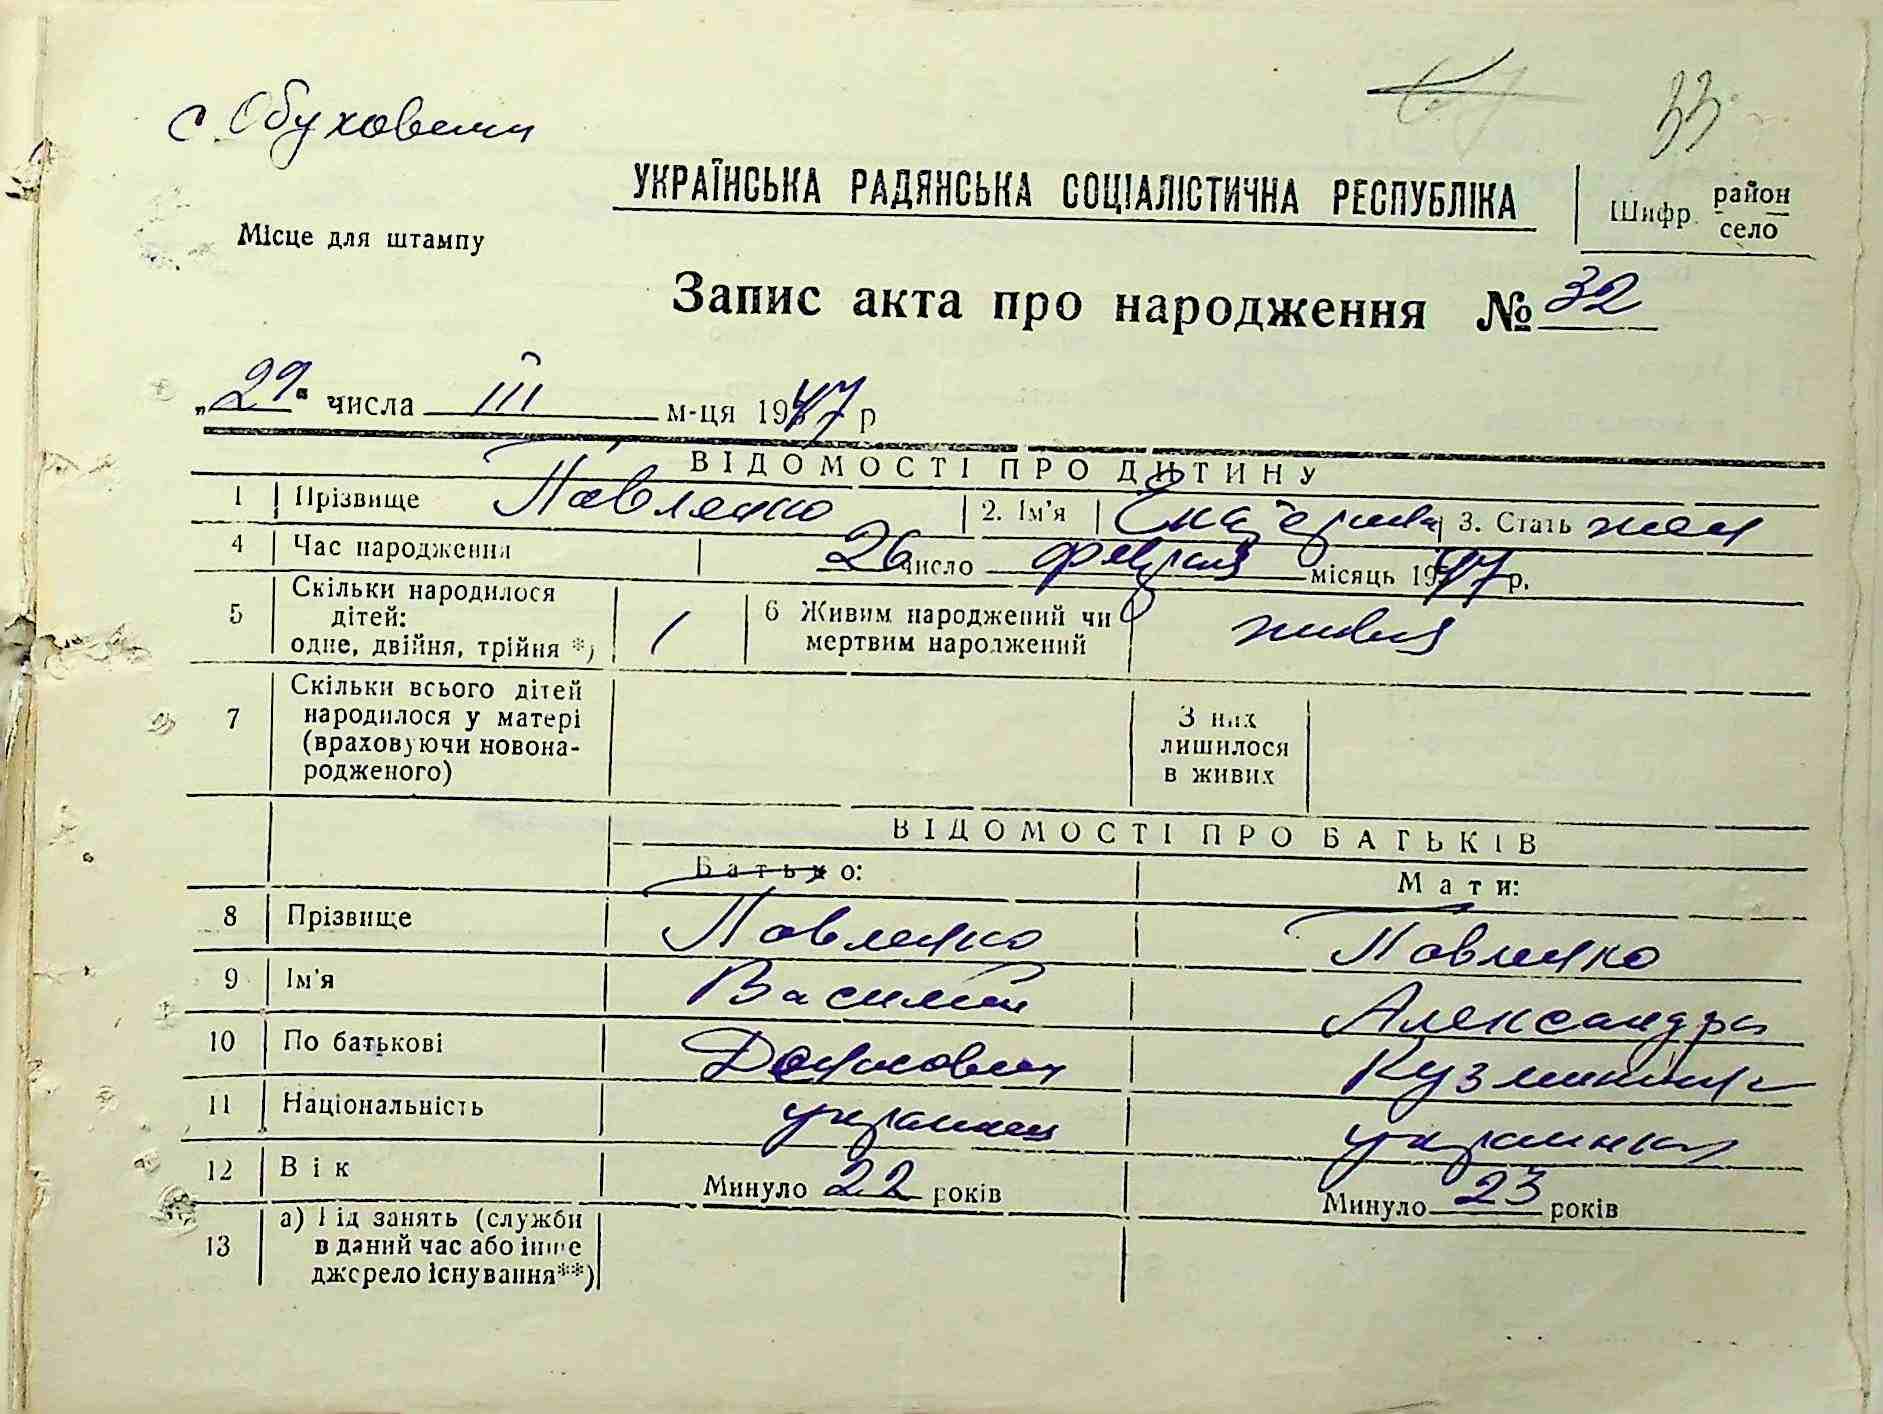 33
с Обуховка
УКРАЇНСЬКА РАДЯНСЬКА СОЦІАЛІСТИЧНА РЕСПУБЛІКА
Шифр район село
Місце для штампу
Запис акта про народження № 32
„29“ числа III м-ця 1947 р
ВІДОМОСТІ ПРО ДИТИНУ
1 Прізвище Павленко 2. Ім'я Екатерина 3. Стать жен
4 Час народження 26 число февраля місяць 1947 р.
5 Скільки народилося дітей: одне, двійня, трійня *) 1 6 Живим народжений чи мертвим народжений живая
7 Скільки всього дітей народилося у матері (враховуючи новонародженого) З них лишилося в живих
ВІДОМОСТІ ПРО БАТЬКІВ
Батько: Мати:
8 Прізвище Павленко Павленко
9 Ім'я Василий Александра
10 По батькові
11 Національність украинец украинка
12 Вік Минуло 22 років Минуло 23 років
13 а) Рід занять (служби в даний час або інше джерело існування**)